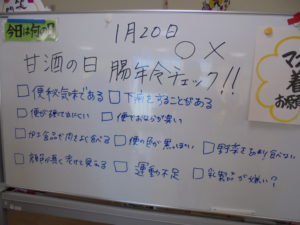 今日は何の日
1月20日
○ ×
甘酒の日 腸年令チェック!!
□便秘気味である □下痢をすることがある
□便が硬くて出にくい □便でおならが臭い
□肉を良く食べる □便の色が黒っぽい □野菜をあまり食べない
□顔色が悪く老けて見える □運動不足 □乳製品が嫌い?
マ
着
お願